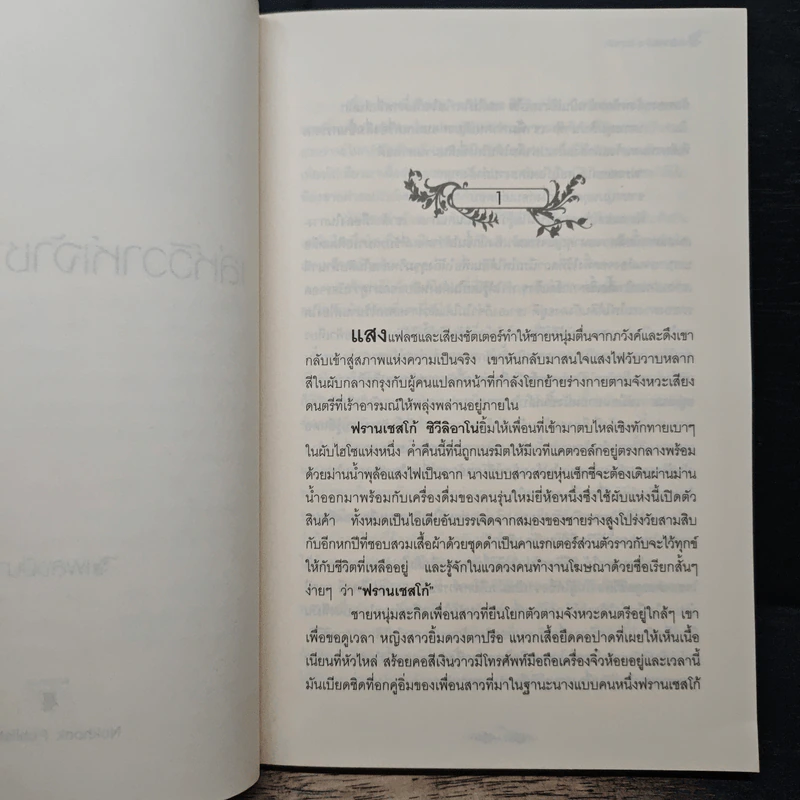 1
แสงแฟลชและเสียงชัตเตอร์ทำให้ชายหนุ่มตื่นจากภวังค์และดึงเขา
กลับเข้าสู่สภาพแห่งความเป็นจริง เขาหันกลับมาสนใจแสงไฟวับวาบหลาก
สีในผับกลางกรุงกับผู้คนแปลกหน้าที่กำลังโยกย้ายร่างกายตามจังหวะเสียง
ดนตรีที่เร้าอารมณ์ให้พลุ่งพล่านอยู่ภายใน
ฟรานเชสโก้ ซิวีลิอาโน่ยิ้มให้เพื่อนที่เข้ามาตบไหล่เชิงทักทายเบาๆ
ในผับไฮโซแห่งหนึ่ง ค่ำคืนนี้ที่นี่ถูกเนรมิตให้มีเวทีแคตวอล์กอยู่ตรงกลางพร้อม
ด้วยม่านน้ำพุล้อแสงไฟเป็นฉาก นางแบบสาวสวยหุ่นเซ็กซี่จะต้องเดินผ่านม่าน
น้ำออกมาพร้อมกับเครื่องดื่มของคนรุ่นใหม่ยี่ห้อหนึ่งซึ่งใช้ผับแห่งนี้เปิดตัว
สินค้า ทั้งหมดเป็นไอเดียอันบรรเจิดจากสมองของชายร่างสูงโปร่งวัยสามสิบ
กับอีกหกปีที่ชอบสวมเสื้อผ้าด้วยชุดดำเป็นคาแรกเตอร์ส่วนตัวราวกับจะไว้ทุกข์
ให้กับชีวิตที่เหลืออยู่ และรู้จักในแวดวงคนทำงานโฆษณาด้วยชื่อเรียกสั้นๆ
ง่ายๆ ว่า “ฟรานเชสโก้”
ชายหนุ่มสะกิดเพื่อนสาวที่ยืนโยกตัวตามจังหวะดนตรีอยู่ใกล้ๆ เขา
เพื่อขอดูเวลา หญิงสาวยิ้มดวงตาปรือ แหวกเสื้อยืดคอปาดที่เผยให้เห็นเนื้อ
เนียนที่หัวไหล่ สร้อยคอสีเงินวาวมีโทรศัพท์มือถือเครื่องจิ๋วห้อยอยู่และเวลานี้
มันเบียดชิดที่อกคู่อิ่มของเพื่อนสาวที่มาในฐานะนางแบบคนหนึ่งฟรานเชสโก้